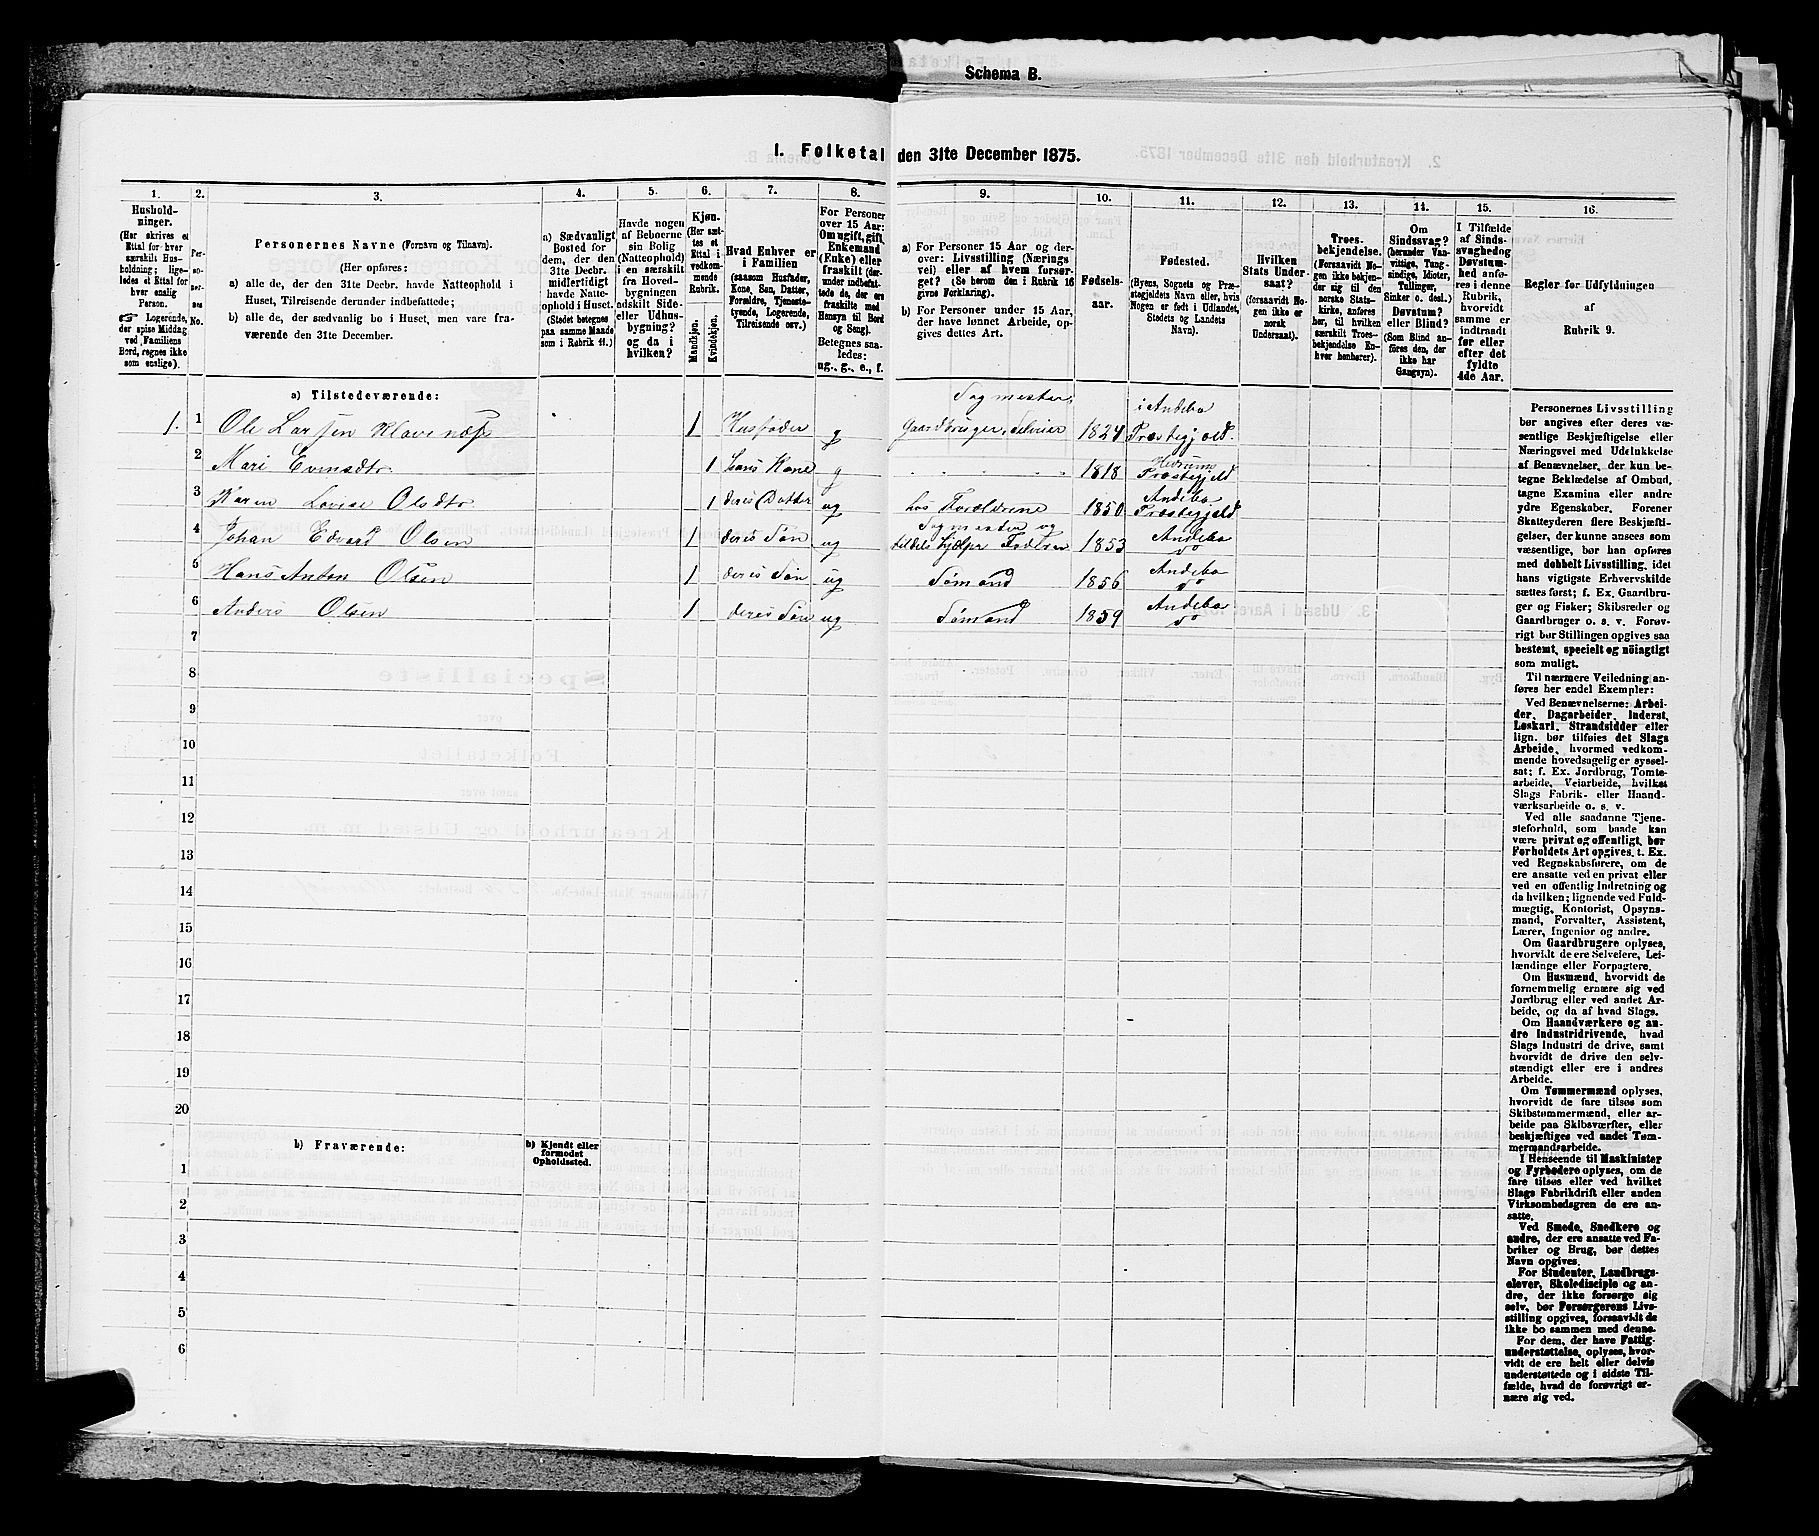 Schema B.
1. Folketal den 31te December 1875.
1. 2. 3. 4. 5. 6. 7. 8. 9. 10. 11. 12. 13. 14. 15. 16.
Husholdninger.
(Her skrives et Ettal for hver særskilt Husholdning; ligeledes et Ettal for hver enslig Person.
☞ Logerende, der spise Middag ved Familiens Bord, regnes ikke som enslige).
Personernes No.
Personernes Navne (Fornavn og Tilnavn).
(Her opføres:
a) alle de, der den 31te Decbr. havde Natteophold i Huset, Tilreisende derunder indbefattede;
b) alle de, der sædvanlig bo i Huset, men vare fraværende den 31te December.
a) Sædvanligt Bosted for dem, der den 31te Decbr. midlertidigt havde Natteophold i Huset. (Stedet betegnes paa samme Maade som i Rubrik 11.)
Havde nogen af Beboerne sin Bolig (Natteophold) i en særskilt fra Hovedbygningen adskilt Side- eller Udhusbygning? og da i hvilken?
Kjøn.
(Her sættes et Ettal i vedkommende Rubrik.
Mandkjøn. Kvindekjøn.
Hvad Enhver er i Familien
(saasom Husfader, Kone, Søn, Datter, Forældre, Tjenestetyende, Logerende, Tilreisende osv.)
For Personer over 15 Aar: Om ugift, gift, Enkemand (Enke) eller fraskilt (derunder indbefattede de, der ere fraskilte med Hensyn til Bord og Seng). Betegnes saaledes: ug., g., e., f.
a) For Personer 15 Aar og derover: Livsstilling (Næringsvei) eller af hvem forsørget? (Se herom den i Rubrik 16 givne Forklaring).
b) For Personer under 15 Aar, der have lønnet Arbeide, opgives dettes Art.
Fødselsaar.
Fødested.
(Byens, Sognets og Præstegjeldets Navn eller, hvis Nogen er født i Udlandet, Stedets og Landets Navn).
Hvilken Stats Undersaat?
(forsaavidt Nogen ikke er norsk Undersaat).
Troesbekjendelse.
(Forsaavidt Nogen ikke bekjender sig til den norske Statskirke, anføres her, til hvilken særskilt Troesbekjendelse Enhver henhører).
Om Sindssvag? (herunder Vanvittige, Tungsindige, Idioter, Tullinger, Sinker o. desl.) Døvstum? eller Blind? (Som Blind anføres den, der ikke har Gangsyn).
I Tilfælde af Sindssvaghed og Døvstumhed anføres i denne Rubrik, hvorvidt samme er indtraadt før eller efter det fyldte 4de Aar.
Regler for Udfyldningen af Rubrik 9.
a) Tilstedeværende:
Sagmester,
1. 1 Ole Larsen Klavenæs 1 Husfader g Gaardbruger, Selveier 1824 i Andebo Præstegjeld.
2 Mari Evensdtr 1 hans Kone g 1818 Hedrums Præstegjeld
3 Karen Lovise Olsdtr 1 deres Datter ug hos Forældrene 1850 Andebo Præstegjeld
4 Johan Edvard Olsen 1 deres Søn ug Sagmester og tildels hjælper Faderen 1853 Andebo do
5 Hans Anton Olsen 1 deres Søn ug Sømand 1856 Andebo do
6 Anders Olsen 1 deres Søn ug Sømand 1859 Andebo do
7
8
9
10
11
12
13
14
15
16
17
18
19
20
b) Fraværende:
b) Kjendt eller formodet Opholdssted.
1
2
3
4
5
6
Personernes Livsstilling
bør angives efter deres væsentlige Beskjæftigelse eller
Næringsvei med Udelukkelse
af Benævnelser, der kun betegne Beklædelse af Ombud,
tagne Examina eller andre
ydre Egenskaber. Forener
Skatteyderen flere Beskjæftigelser, der kunne ansees som
væsentlige, bør han opføres
med dobbelt Livsstilling, idet
hans vigtigste Erhvervskilde
sættes først; f. Ex. Gaardbruger og Fisker; Skibsreder og
Gaardbruger o. s. v. Forøvrigt bør Stillingen opgives saa
bestemt, specielt og nöiagtigt
som muligt.
Til nærmere Veiledning anføres her endel Exempler:
Ved Benævnelserne: Arbeider, Dagarbeider, Inderst,
Løskarl, Strandsidder eller
lign. bør tilføies det Slags
Arbeide, hvormed vedkommende hovedsagelig er sysselsat; f. Ex. Jordbrug, Tomtearbeide, Veiarbeide, hvilket
Slags Fabrik- eller Haandværksarbeide o. s. v.
Ved alle saadanne Tjenesteforhold, som baade kan
være privat og offentligt, bør
Forholdets Art opgives, t. Ex.
ved Regnskabsførere, om de
ere ansatte ved en privat eller
ved en offentlig Indretning og
da hvilken; lignende ved Fuldmægtig, Kontorist, Opsynsmand, Forvalter, Assistent,
Lærer, Ingeniør og andre.
Om Gaardbrugere oplyses,
hvorvidt de ere Selveiere, Leilændinge eller Forpagtere.
Om Husmænd, hvorvidt de
fornemmelig ernære sig ved
Jordbrug eller ved andet Arbeide, og da af hvad Slags.
Om Haandværkere og andre Industridrivende, hvad
Slags Industri de drive, samt
hvorvidt de drive den selvstændigt eller ere i andres
Arbeide.
Om Tømmermænd oplyses,
hvorvidt de fare tilsøs som
Skibstømmermænd, eller arbeide paa Skibsværfter, eller
beskjæftiges ved andet Tømmermandsarbeide.
I Henseende til Maskinister
og Fyrbødere oplyses, om de
fare tilsøs eller ved hvilket
Slags Fabrikdrift eller anden
Virksomhedsgren de ere ansatte.
Ved Smede, Snedkere og
andre, der ere ansatte ved Fabriker og Brug, bør dettes
Navn opgives.
For Studenter, Landbrugselever, Skoledisciple og andre, der ikke forsørge sig
selv, bør Forsørgerens Livsstilling opgives, forsaavidt de
ikke bo sammen med denne.
For dem, der have Fattigunderstøttelse, oplyses, hvorvidt de ere helt eller delvis
understøttede og i sidste Tilfælde, hvad de forøvrigt ernære sig ved.